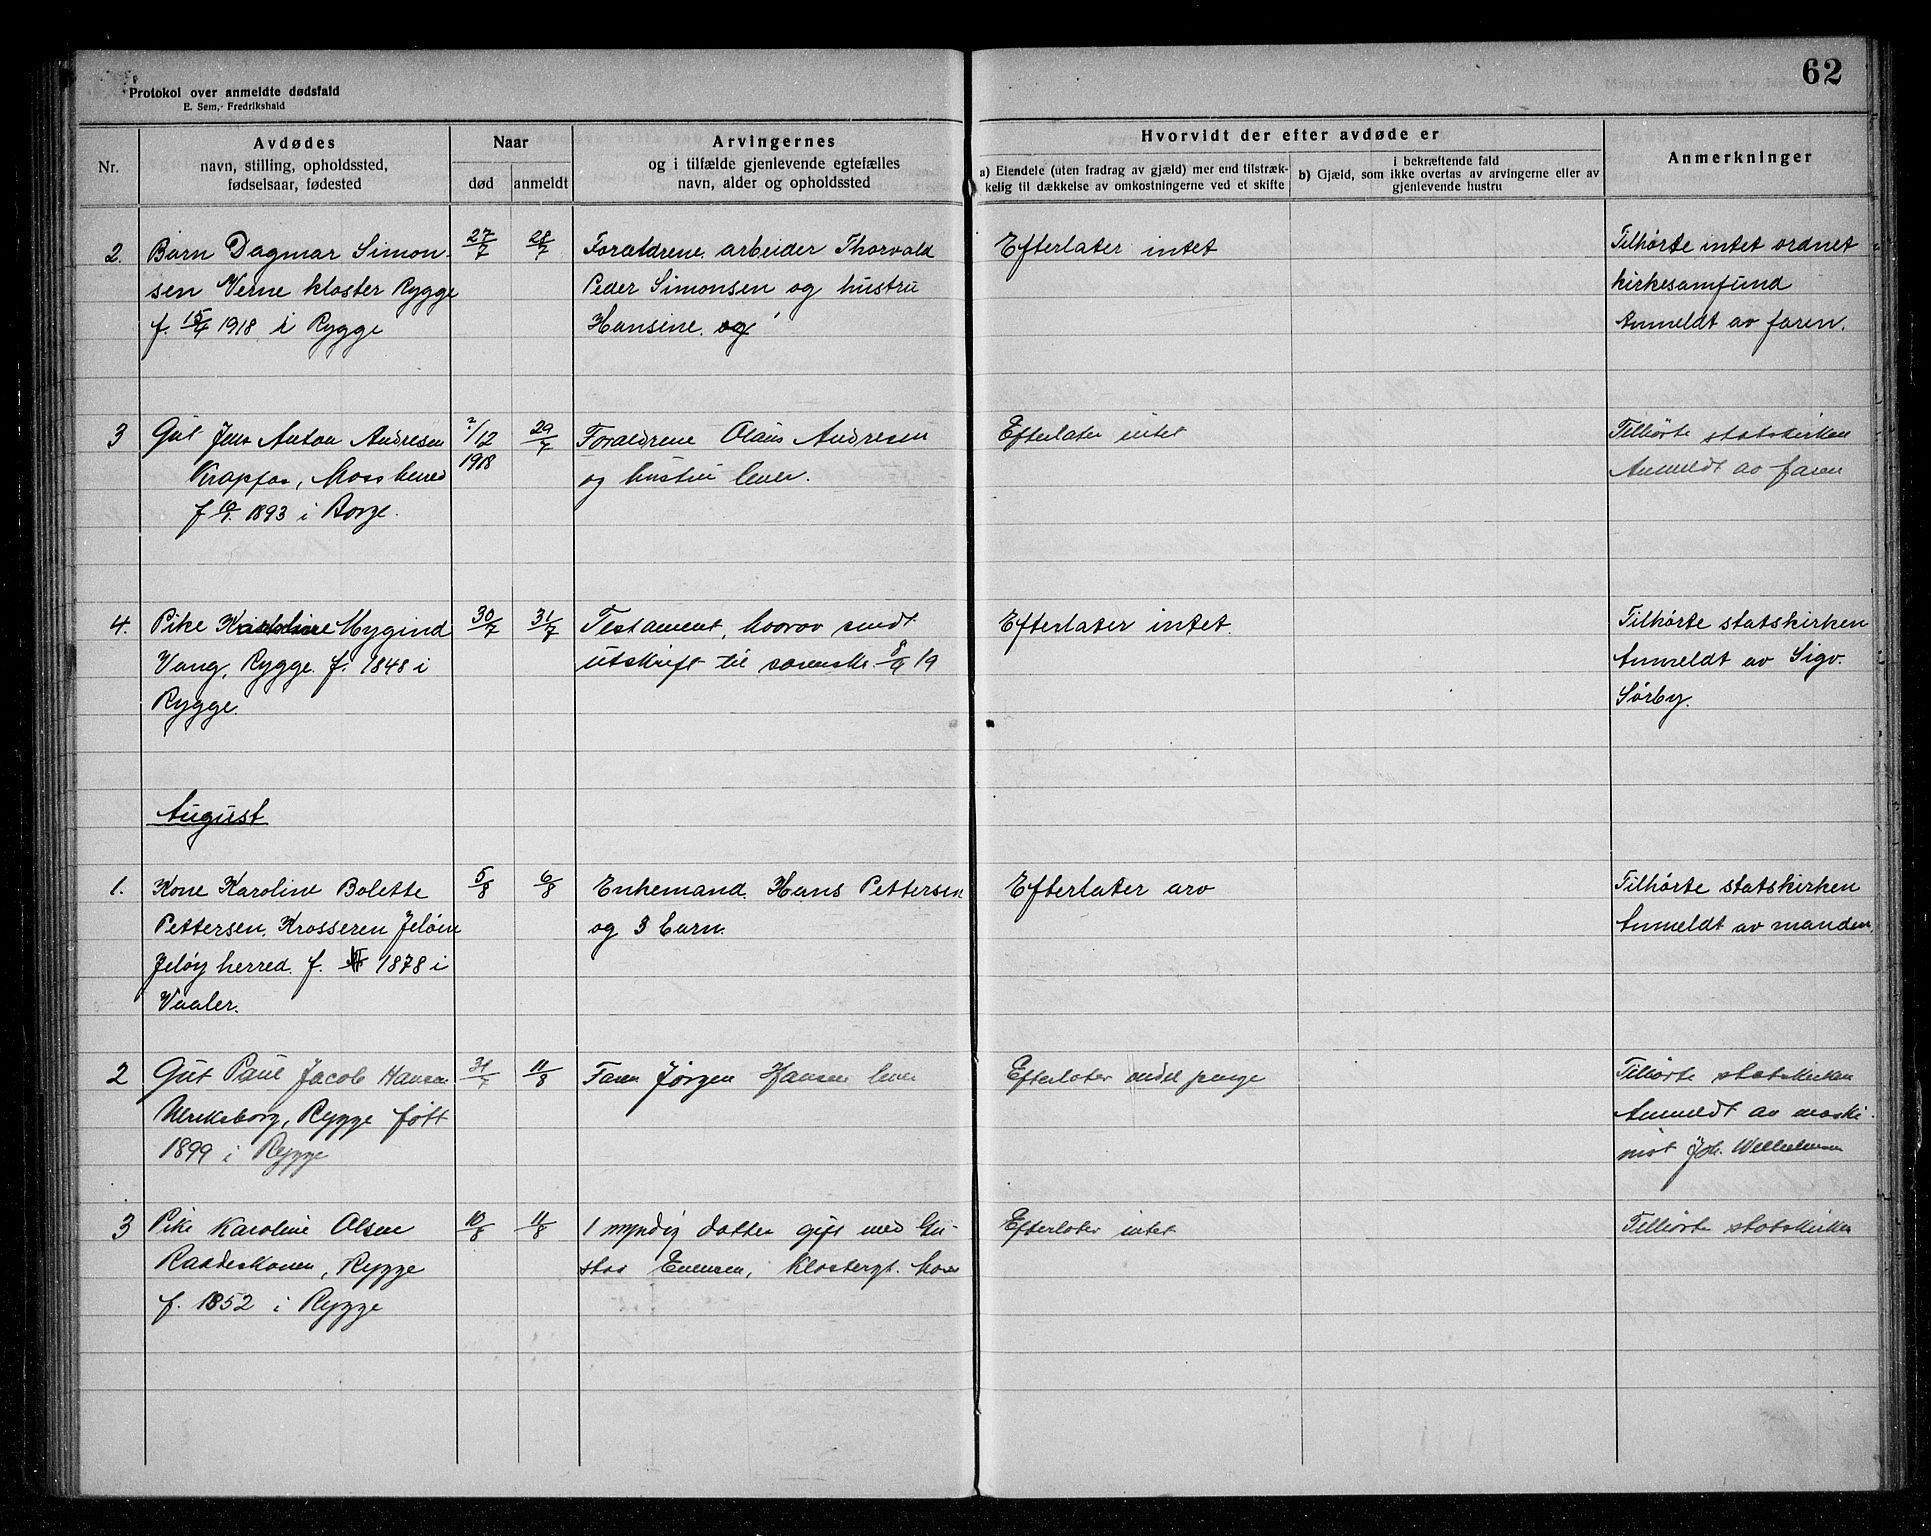 62
Protokol over anmeldte dødsfald
E. Sem,- Fredrikshald
Nr.
Avdødes
navn, stilling, opholdssted,
fødselsaar, fødested
Naar
død
anmeldt
Arvingernes
og i tilfælde gjenlevende egtefælles
navn, alder og opholdssted
Hvorvidt der efter avdøde er
a) Eiendele (uten fradrag av gjæld) mer end tilstræk-
kelig til dækkelse av omkostningerne ved et skifte
i bekræftende fald
b) Gjæld, som ikke overtas av arvingerne eller av
gjenlevende hustru
Anmerkninger
2. Barn Dagmar Simon-
sen Verne kloster Rygge
f. 15/4 1918 i Rygge
27/7
28/7
Forældrene arbeider Thorvald
Peder Simonsen og hustru
Hansine. og
Efterlater intet
Tilhørte intet ordnet
kirkesamfund
Anmeldt av faren.
3 Gut Jens Anton Andresen
Krapfos, Moss herred
1893 i Borge.
?/12
1918
29/7
Forældrene Olaus Andresen
og hustru lever.
Efterlater intet
Tilhørte statskirken
Anmeldt av faren
4. Pike Mygind
Vang, Rygge. f. 1848 i
Rygge.
30/7
31/7
Testament, hvorav sendt
utskrift til sorensk. 19
Efterlater intet.
Tilhørte statskirken
Anmeldt av Sigv.
Sørby.
August
1. Kone Karoline Bolette
Pettersen. Krosseren Jeløen
Jeløy herred. f. 1878 i
Vaaler.
5/8
6/8
Enkemand. Hans Pettersen
og 3 barn.
Efterlater arv
Tilhørte statskirken
Anmeldt av manden.
2 Gut Paul Jacob Hansen
Ulriksborg, Rygge født
1899 i Rygge
31/7
11/8
Faren Jørgen Hansen lever
Efterlater endel penge
Tilhørte statskirken
Anmeldt av maski-
nist Joh. Wilhelmsen
3 Pike Karoline Olsen
Raadeskonen, Rygge
f. 1852 i Rygge
10/8
11/8
1 myndig datter gift med Gu-
stav Evensen, Klostergt. Moss
Efterlater intet
Tilhørte statskirken